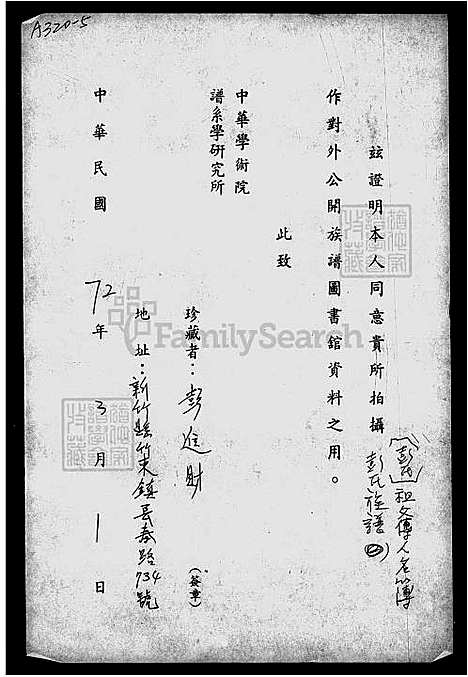 A320-5
茲證明本人同意貴所拍攝 彭氏族譜(2)
(彭氏)祖父傳人名簿
作對外公開族譜圖書館資料之用。
此致
中華學術院
譜系學研究所
珍藏者：彭進財 (簽章)
地址：新竹縣竹東鎮長春路734號
中華民國 72年 3月 1日
FamilySearch